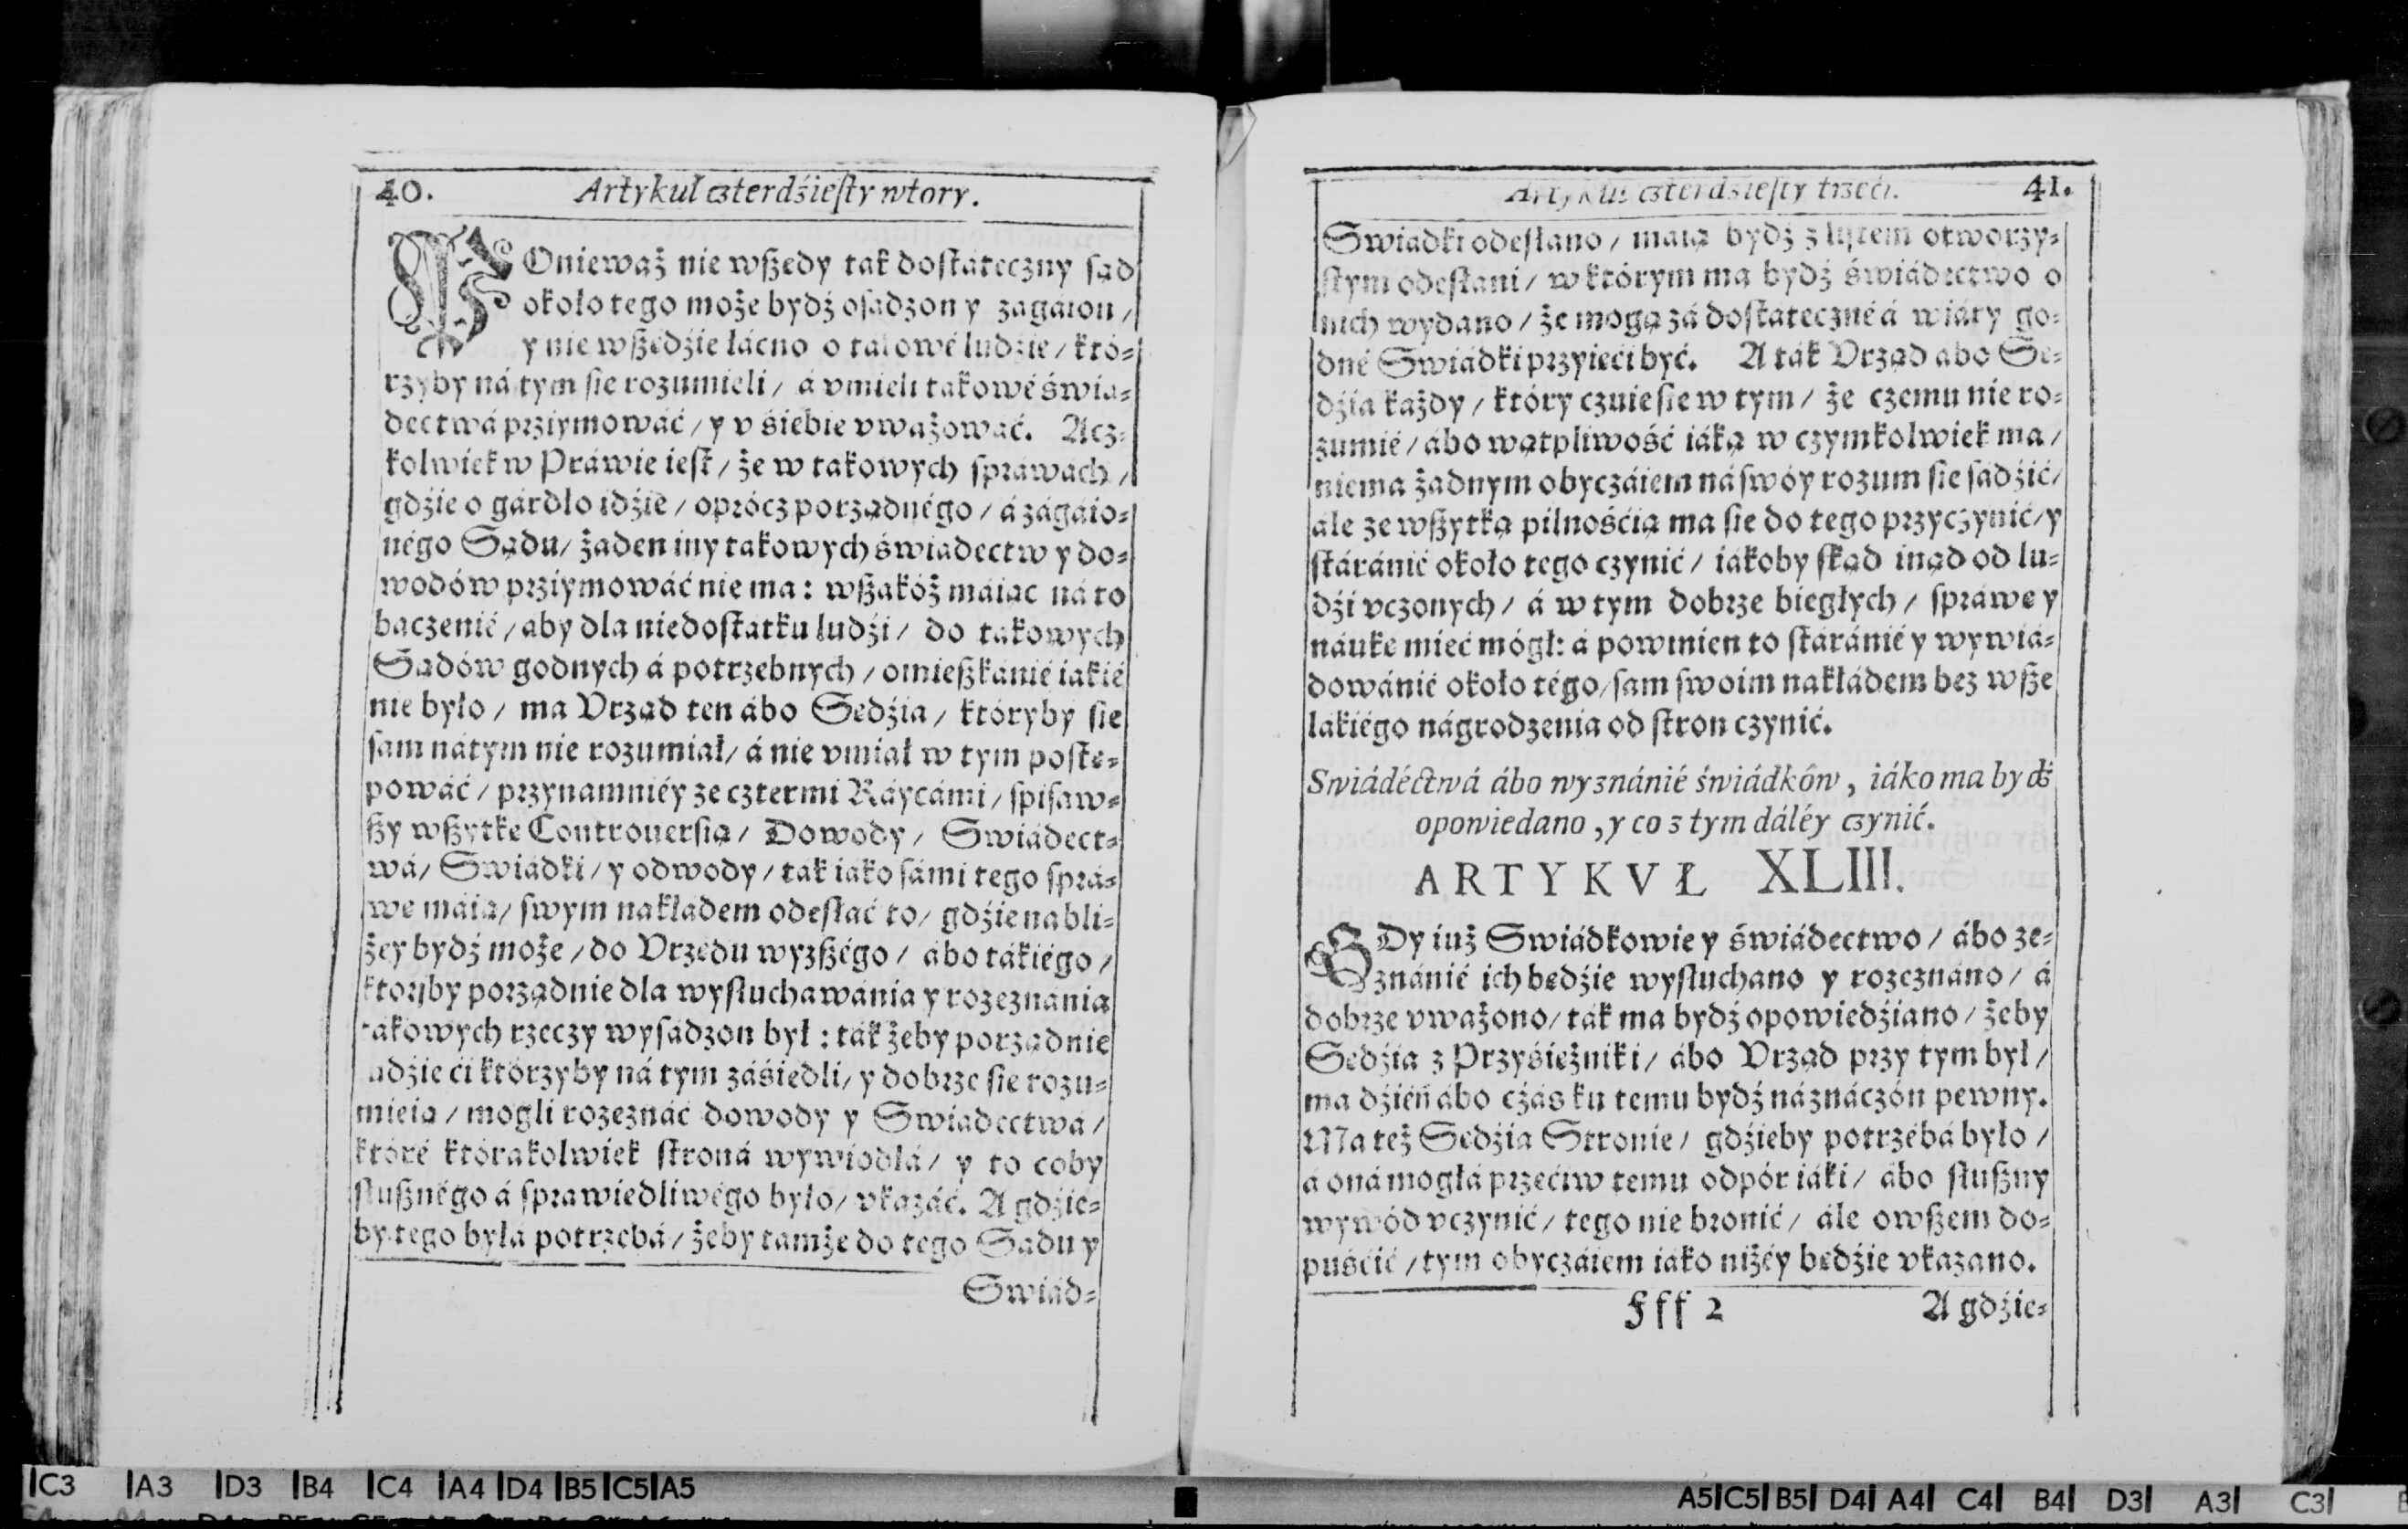 40. Artykuł czterdźieſty wtory.
POniewaž nie wßędy tak doſtáteczny ſąd
około tego može bydź oſadzon y zagáion /
y nie wßędźie łácno o takowé ludzie / któ⸗
rzyby ná tym ſie rozumieli / á vmieli takowé świa⸗
dectwá prziymowáć / y v śiebie vważowáć. Acz⸗
kolwiek w Práwie ieſt / że w takowych ſpráwách /
gdźie o gárdło idźie / oprócz porządnégo / á zágáio⸗
négo Sądu / żaden iny takowych świadectw y do⸗
wodów prziymowáć nie ma: wßakóż máiąc ná to
baczenié / aby dla niedoſtatku ludźi / do takowych
Sądów godnych á potrzebnych / omießkánié iakié
nie było / ma Vrząd ten ábo Sędźia / któryby ſie
ſam ná tym nie rozumiał / á nie vmiał w tym poſtę⸗
powáć / przynamniéy ze cztermi Ráycámi / ſpiſaw⸗
ßy wßytkę Controuerſią / Dowody / Swiádect⸗
wá / Swiádki / y odwody / ták iáko ſámi tego ſprá⸗
wę máią / ſwym nakładem odeſłać to / gdźie nabli⸗
żey bydź może / do Vrzędu wyzßégo / ábo tákiégo /
któryby porządnie dla wyſłuchawánia y rozeznánia
takowych rzeczy wyſádzon był: ták żeby porządnie
ludźie ći którzyby ná tym záśiedli / y dobrze ſie rozu⸗
mieią / mogli rozeznáć dowody y Swiadectwá /
któré którakolwiek ſtroná wywiodłá / y to coby
ſłußnégo á ſprawiedliwégo było / vkazáć. A gdźie⸗
by tego byłá potrzebá / żeby tamże do tego Sądu y
Swiád⸗
Artykuł czterdźieſty trzeći. 41.
Swiadki odeſłano / maią bydź z liſtem otworzy⸗
ſtym odeſłani / w którym ma bydź świádectwo o
nich wydano / że mogą zá doſtateczné á wiáry go⸗
dné Swiádki przyięći być. A ták Vrząd abo Sę⸗
dźia każdy / który czuie ſie w tym / że czemu nie ro⸗
zumié / ábo wątpliwość iáką w czymkolwiek ma /
niema żadnym obyczáiem ná ſwóy rozum ſie ſádźić /
ále ze wßytką pilnośćią ma ſie do tego przyczynić / y
ſtáránié około tego czynić / iákoby ſkąd inąd od lu⸗
dźi vczonych / á w tym dobrze biegłych / ſpráwę y
náukę mieć mógł: á powinien to ſtáránié y wywiá⸗
dowánié około tégo / ſam ſwoim nakłádem bez wße
lakiégo nágrodzenia od ſtron czynić.
Swiádéctwá ábo wyznánié świádków, iáko ma bydź
opowiedano, y co z tym dáléy czynić.
ARTYKVŁ XLIII.
GDy iuż Swiádkowie y świádectwo / ábo ze⸗
znánié ich będźie wyſłuchano y rozeznáno / á
dobrze vważono / ták ma bydź opowiedźiano / żeby
Sędźia z Przyśiężniki / ábo Vrząd przy tym był /
ma dźień ábo czás ku temu bydź náznáczón pewny.
Ma też Sędźia Stronie / gdźieby potrzébá było /
á oná mogłá przećiw temu odpór iáki / ábo ſłußny
wywód vczynić / tego nie bronić / ále owßem do⸗
puśćić / tym obyczáiem iáko niżéy będźie vkazano.
Fff 2 A gdźie⸗
C3 A3 D3 B4 C4 A4 D4 B5 C5 A5
A5 C5 B5 D4 A4 C4 B4 D3 A3 C3